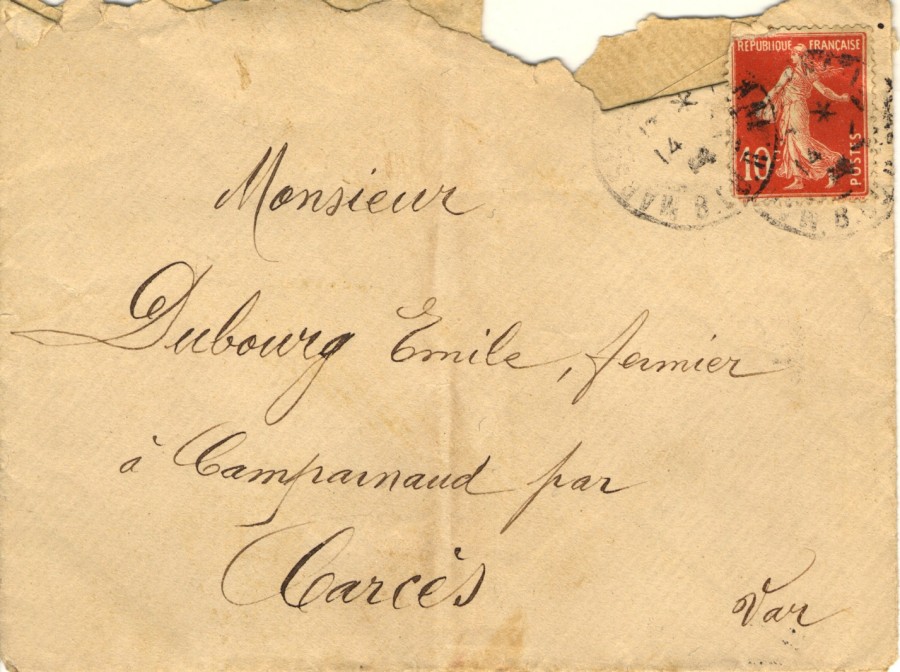 RÉPUBLIQUE FRANÇAISE
10
POSTES
14
Monsieur
Dubourg Emile, fermier
à Camparnaud par
Carcès
Var